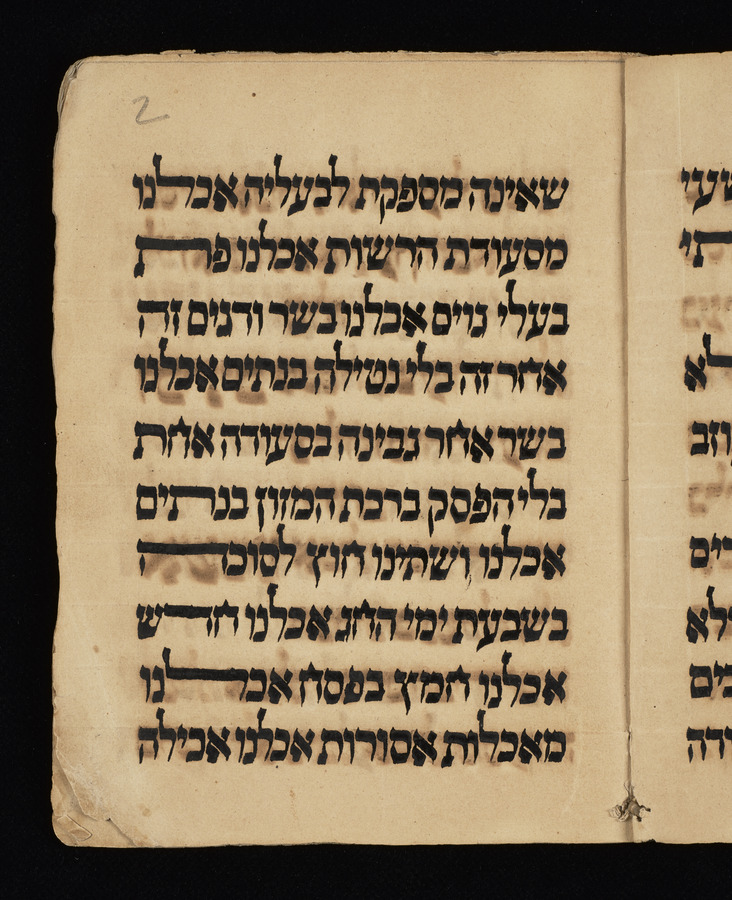 2
שאינה מספקת לבעליה אכלנו
מסעודת הרשות אכלנו פת
בעלי גוים אכלנו בשר ודגים זה
אחר זה בלי נטילה בנתים אכלנו
בשר אחר גבינה בסעודה אחת
בלי הפסק ברכת המזון בנתים
אכלנו ושתינו חוץ לסוכה
בשבעת ימי החג אכלנו חדש
אכלנו חמץ בפסח אכלנו
מאכלות אסורות אכלנו אכילה